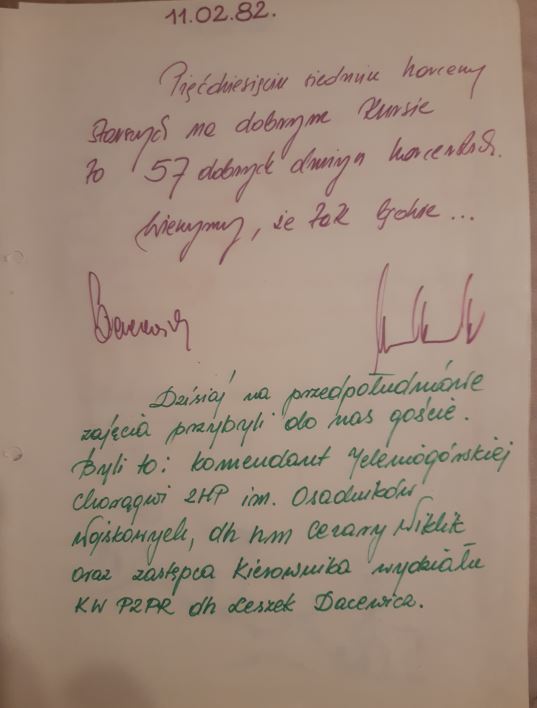 11.02.82.
Pięćdziesięciu siedmiu harcerzy
starszych na dobrym kursie
to 57 dobrych drużyn harcerskich.
Wierzymy, że tak będzie...
Dzisiaj na przedpołudniowe
zajęcia przybyli do nas goście.
Byli to: komendant Jeleniogórskiej
Chorągwi ZHP im. Osadników
Wojskowych, dh hm Cezary Wiklik
oraz zastępca kierownika wydziału
KW PZPR dh Leszek Dacewicz.